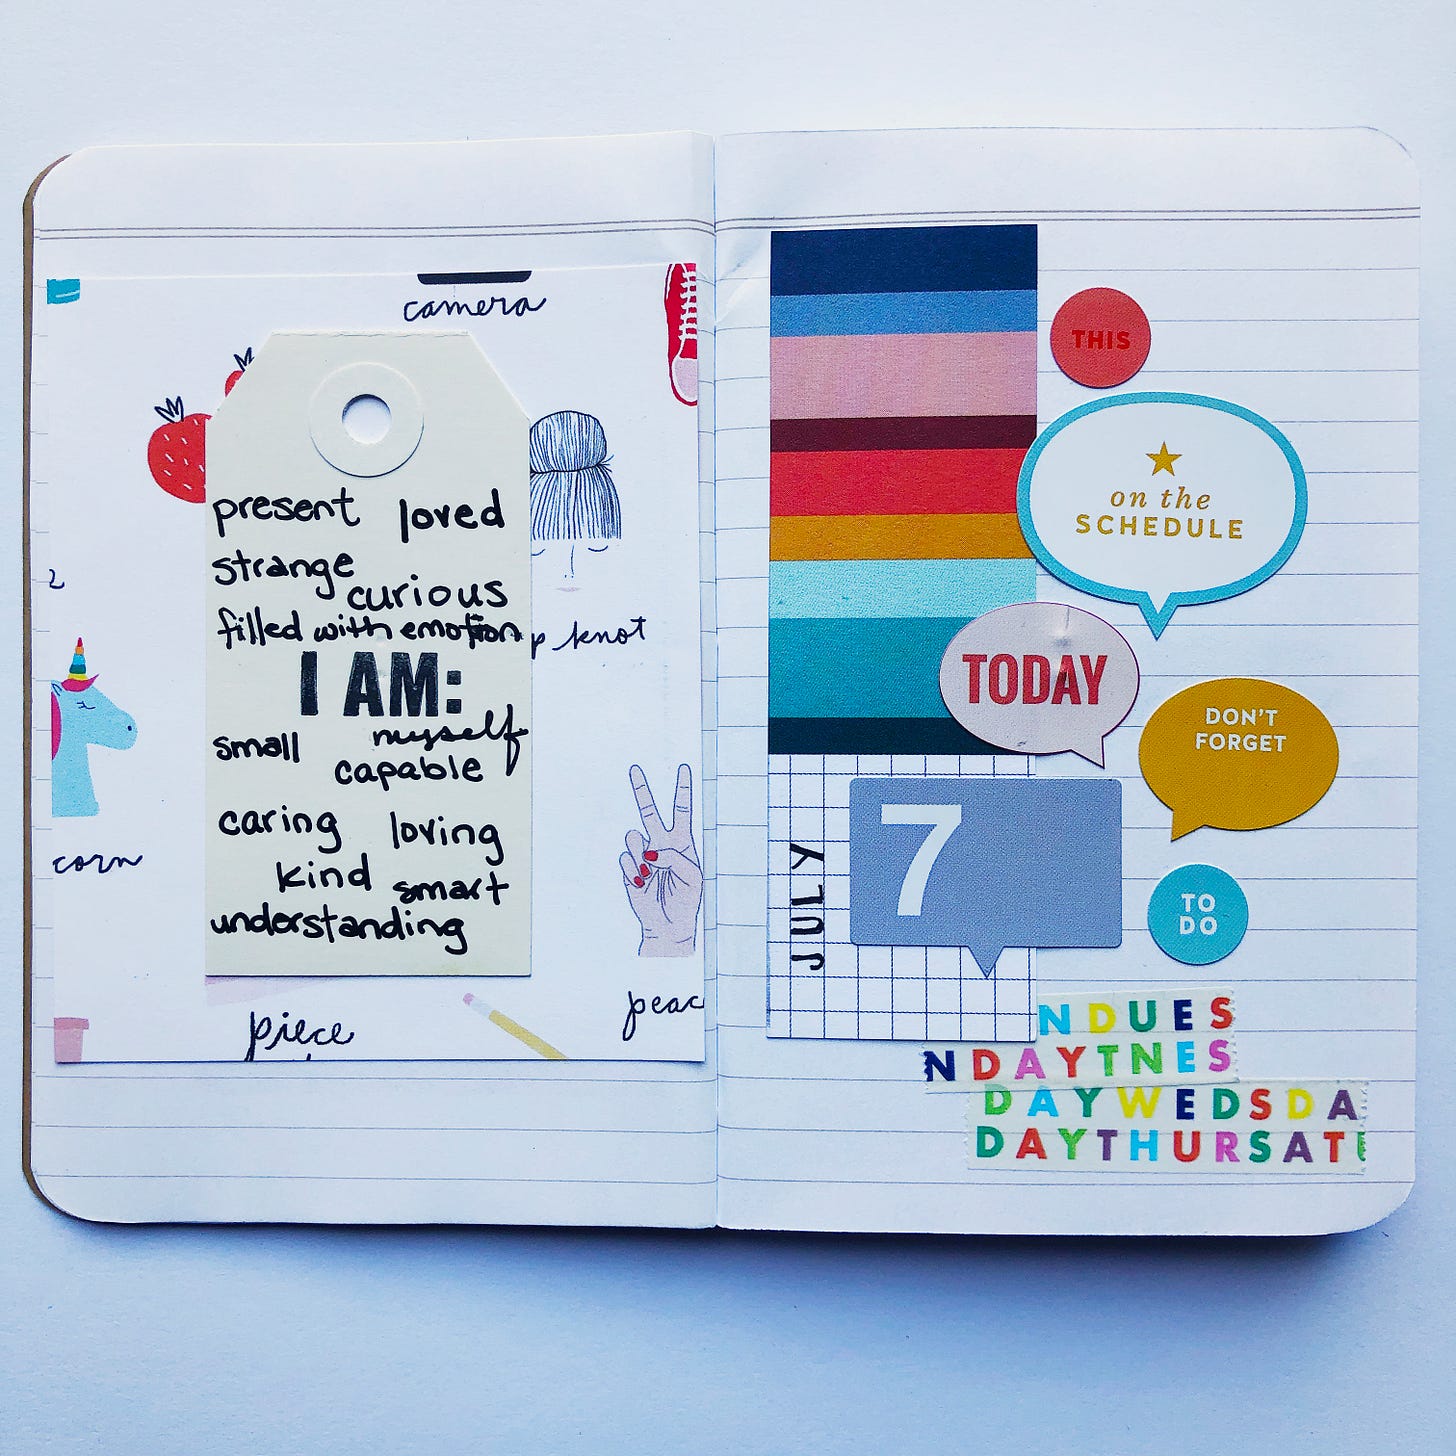 camera
present loved
strange
curious
filled with emotion
p knot
I AM:
myself
small
capable
caring loving
corn
kind smart
understanding
peac
piece
THIS
on the
SCHEDULE
TODAY
DON'T
FORGET
7
JULY
TO
DO
NDUES
NDAYTNES
DAYWEDSDA
DAYTHURSAT